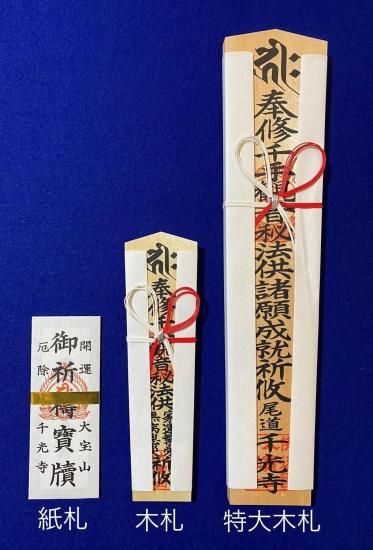 開運 大宝山
御祈禱寶牘
厄除 千光寺
奉修千手観音秘法供
祈攸
奉修千手観音秘法供諸願成就祈攸
尾道 千光寺
紙札
木札
特大木札